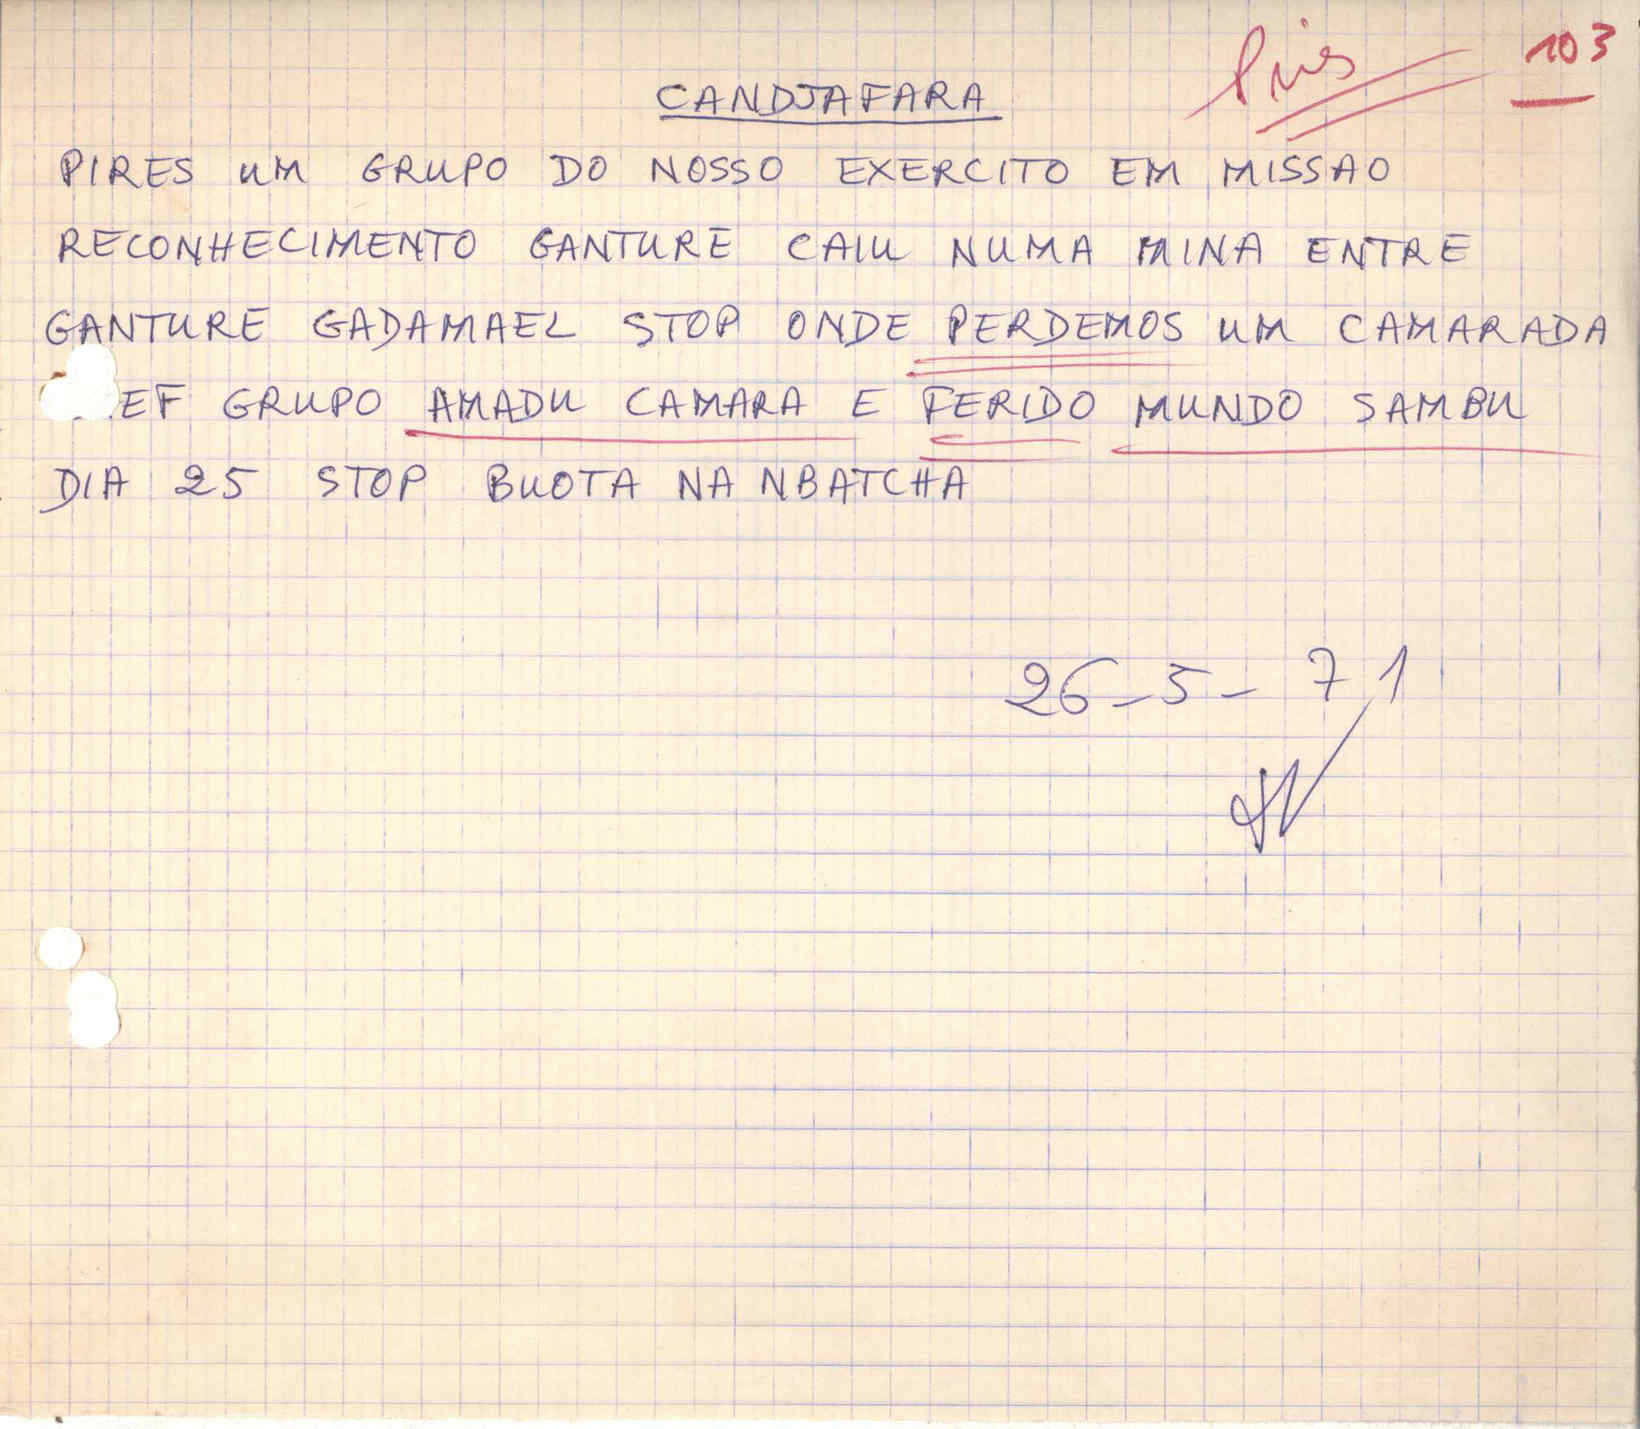 Pires 103
CANDJAFARA
PIRES UM GRUPO DO NOSSO EXERCITO EM MISSAO
RECONHECIMENTO GANTURE CAIU NUMA MINA ENTRE
GANTURE GADAMAEL STOP ONDE PERDEMOS UM CAMARADA
EF GRUPO AMADU CAMARA E FERIDO MUNDO SAMBU
DIA 25 STOP BUOTA NA NBATCHA
26-5-71